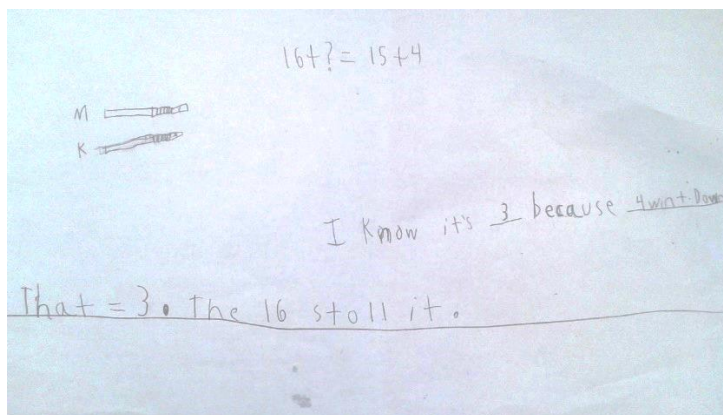 16+?= 15+4
M
K
I know it's 3 because 4 wint Down
That = 3. The 16 stoll it.